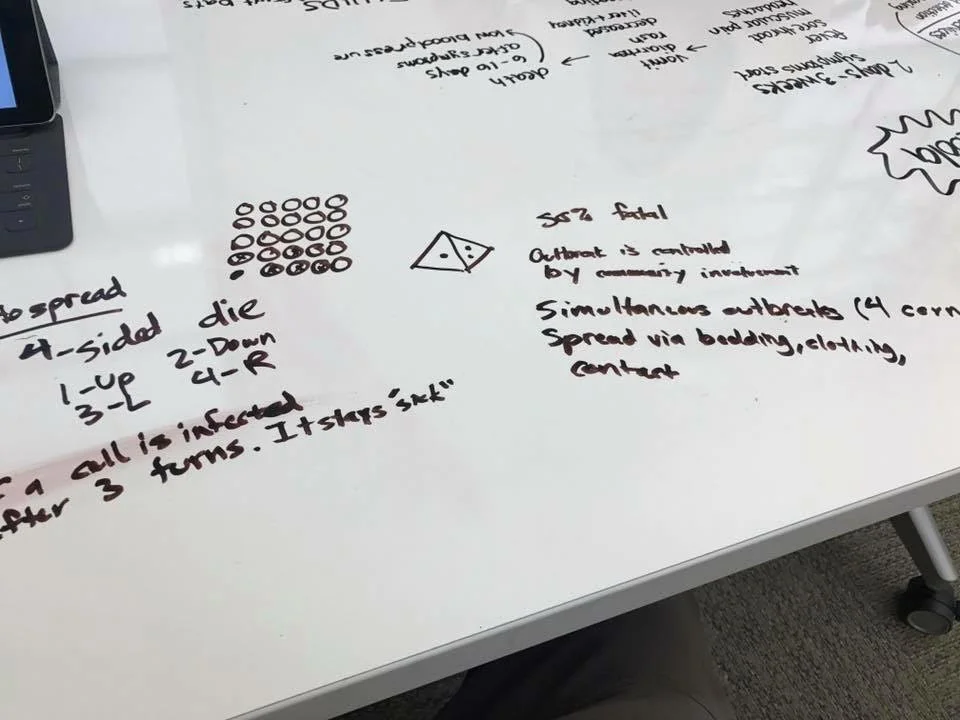 to spread
4-sided die
1-Up 2-Down
3-L 4-R
a cell is infected
after 3 turns. It stays "sick"
50% fatal
Outbreak is controlled
by community involvement
Simultaneous outbreaks (4 corn
Spread via bedding, clothing,
contact
2 days-3 weeks
symptoms start
fever
sore throat
muscular pain
headache
vomit
diarrea
rash
decreased
liver + kidney
death
6-16 days
after symptoms
low blood pressure